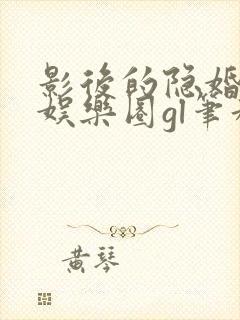 影後的隐婚
娱樂圈gl筆
黄琴